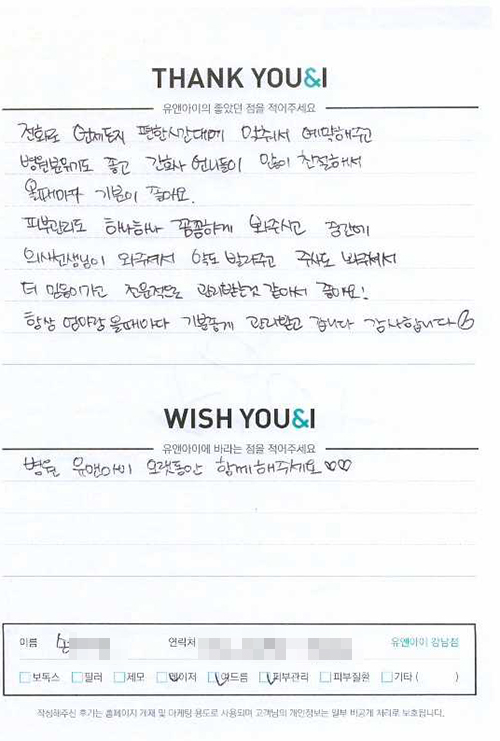 THANK YOU&I
유앤아이의 좋았던 점을 적어주세요
전화로 언제든지 편한시간대에 맞춰서 예약해주고
병원분위기도 좋고 간호사 언니들이 많이 친절해서
올때마다 기분이 좋아요.
피부관리도 하나하나 꼼꼼하게 봐주시고 중간에
의사선생님이 와주셔서 약도 발라주고 주사도 놔주셔서
더 믿음이가고 전문적으로 관리받는것 같아서 좋아요!
항상 엄마랑 올때마다 기분좋게 관리받고 갑니다 감사합니다
WISH YOU&I
유앤아이에 바라는 점을 적어주세요
병원 유앤아이 오랫동안 함께해주세요♡♡
이름 손 연락처 유앤아이 강남점
보톡스 필러 제모 레이저 여드름 피부관리 피부질환 기타 ( )
작성해주신 후기는 홈페이지 게재 및 마케팅 용도로 사용되며 고객님의 개인정보는 일부 비공개 처리로 보호됩니다.